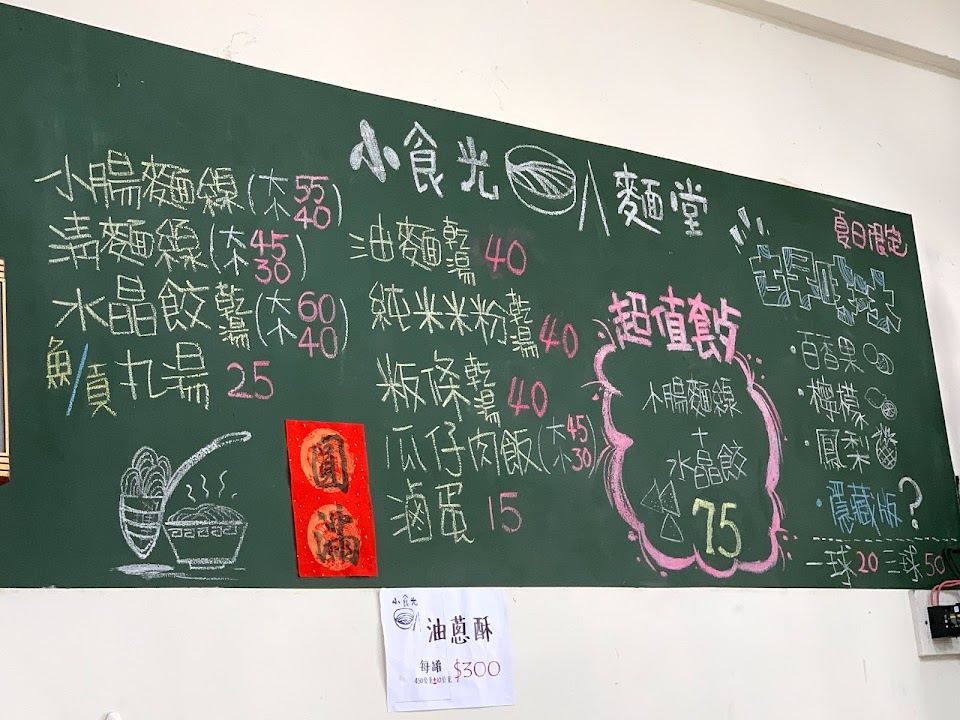 小食光 麵堂
小腸麵線(大55 小40)
清麵線(大45 小30)
水晶餃乾湯(大60 小40)
魚/貢丸湯 25
油麵乾湯 40
純米米粉乾湯 40
粄條乾湯 40
瓜仔肉飯(大45 小30)
滷蛋 15
超值套餐
小腸麵線
水晶餃
75
夏日限定
·百香果
·檸檬
·鳳梨
·隱藏版?
一球20 三球50
圓滿
小食光
油蔥酥
每罐 $300
450公克±10公克